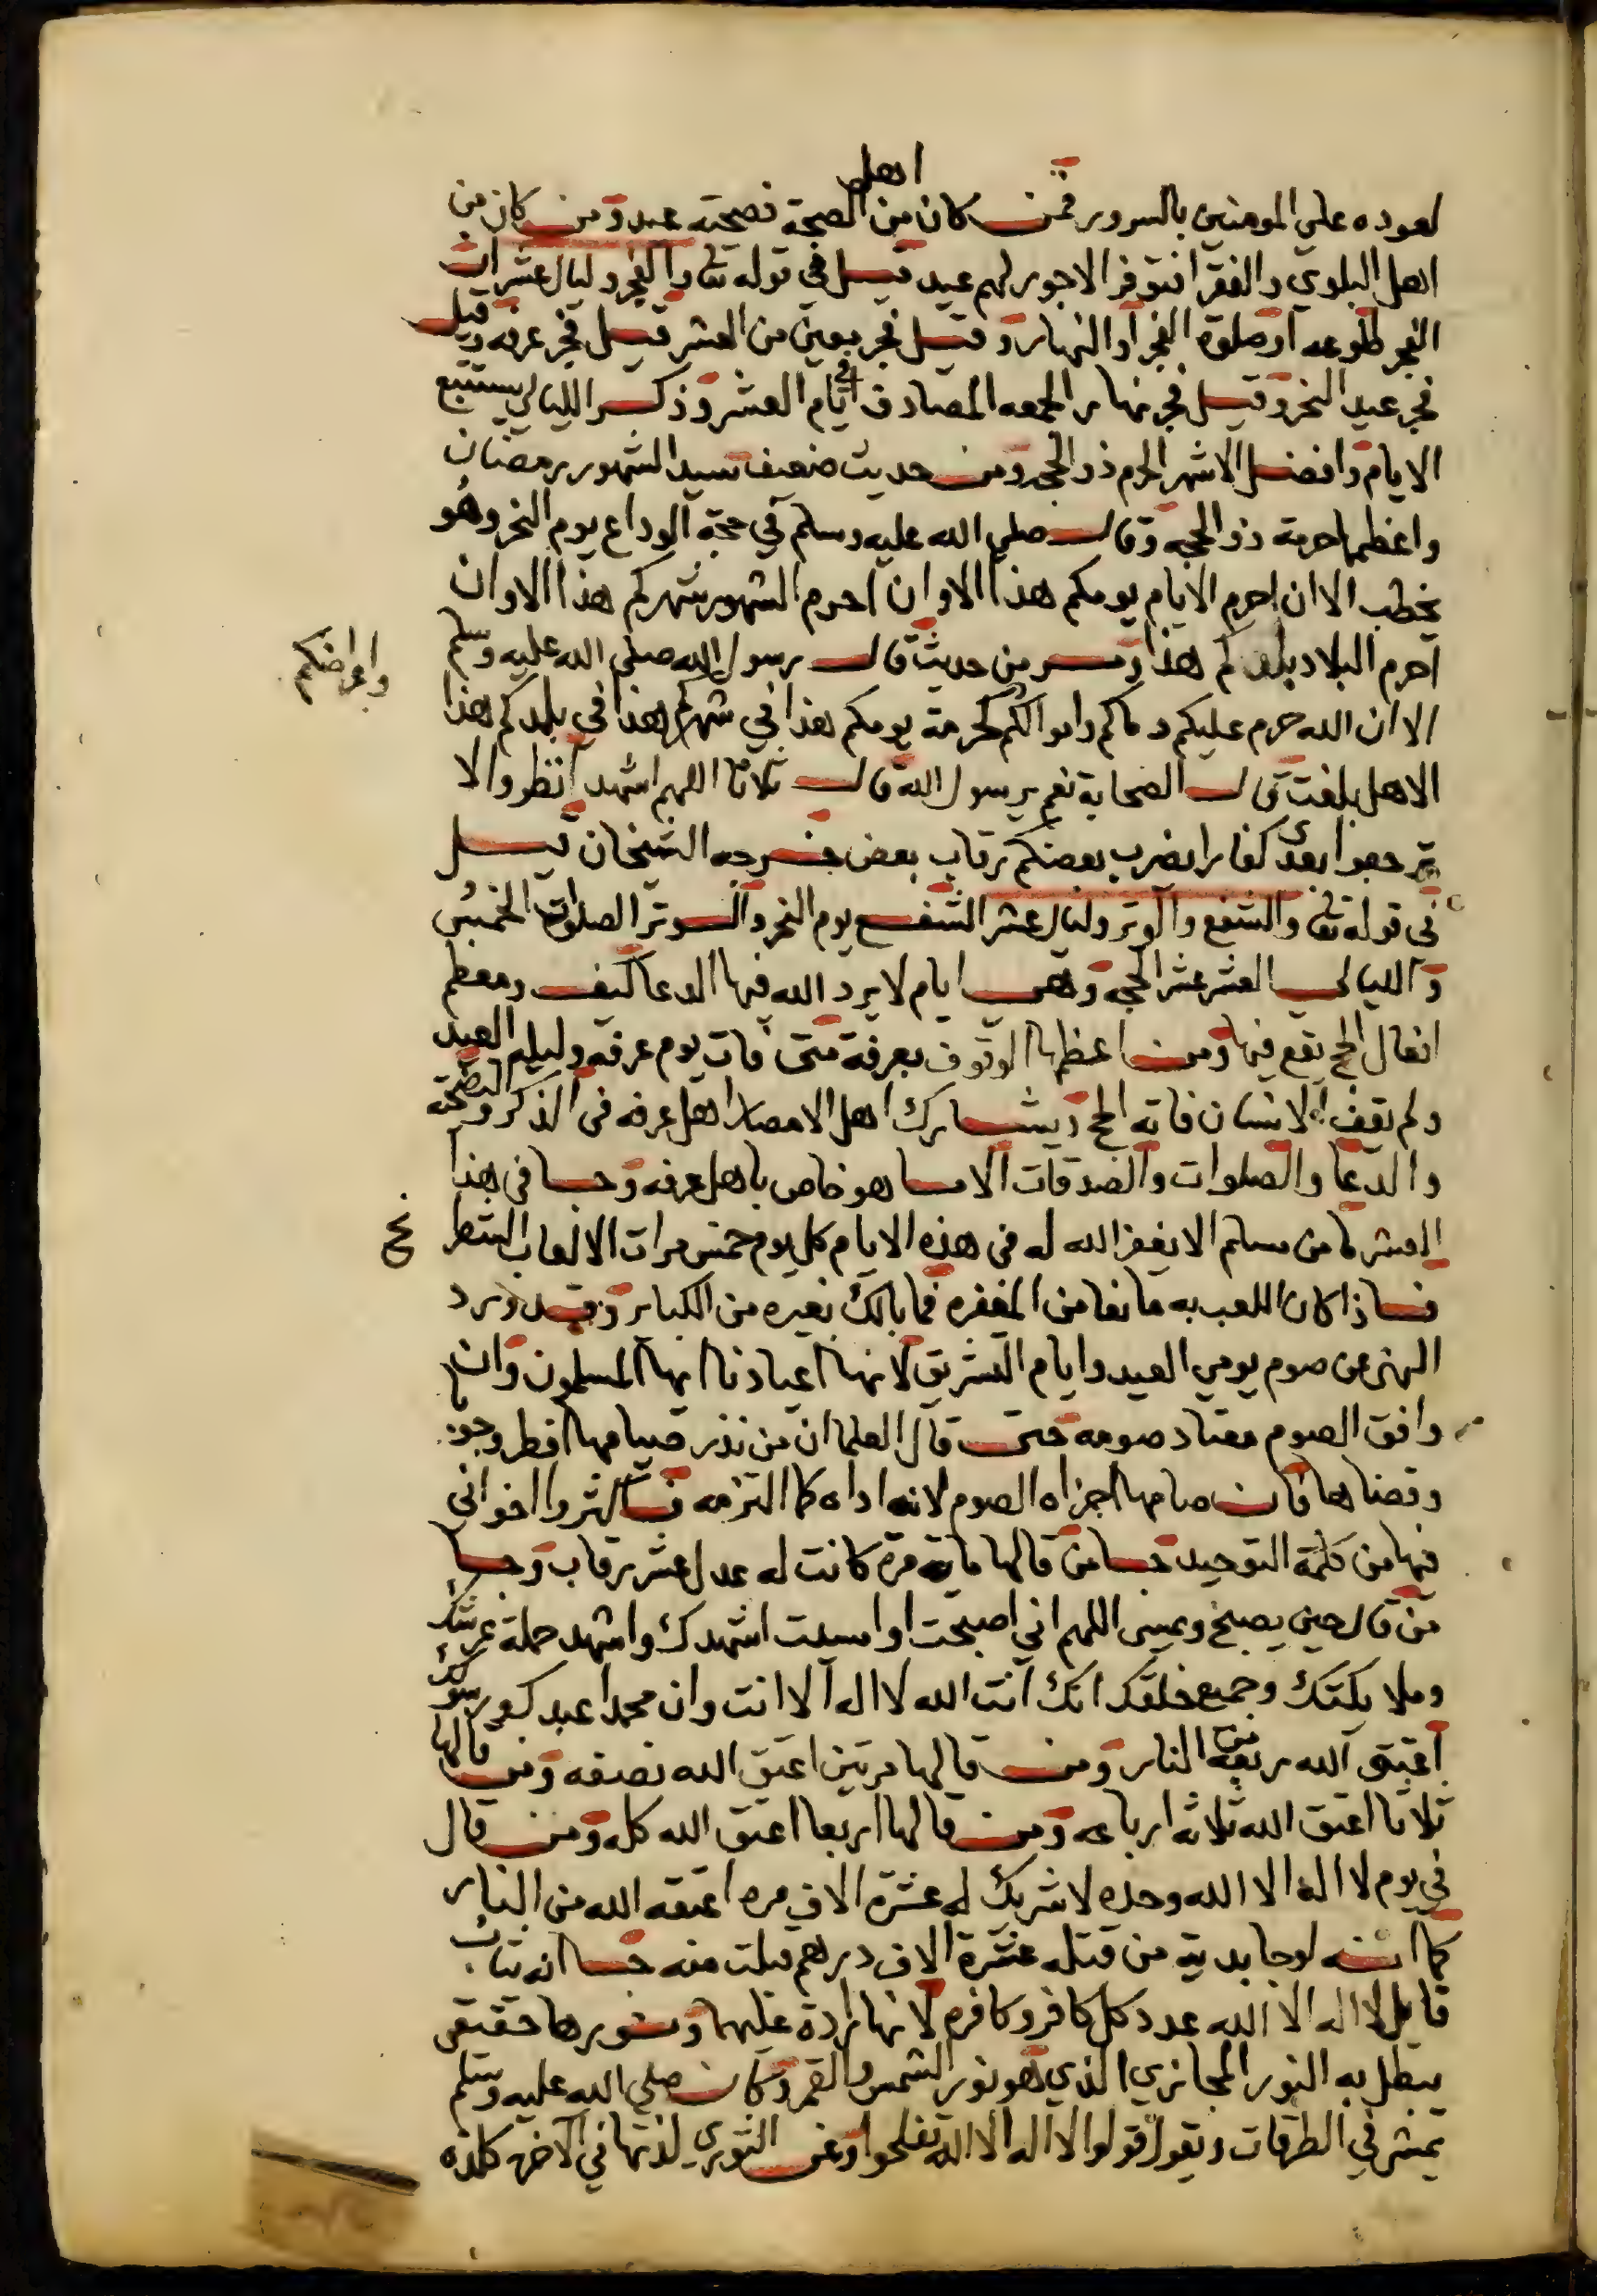 لعوده علي المومنين بالسرور فمن كان من اهل الصحة فصحته عيد ومن كان من
اهل البلوي والفقر افتوفر الاجور لهم عيد قيل في قوله تعا والفجر وليال عشر ان
الفجر طلوعه او صلوة الفجر او النهار وقيل فجر معين من العشر قيل فجر عرفه وقيل
فجر عيد النحر وقيل فجر نهار الجمعه المصادف في ايام العشر وذكر الليالي ليستتبع
الايام وافضل الاشهر الحرم ذو الحجه ومن حديث ضعيف سيد الشهور رمضان
واعظمها حرمة ذو الحجه وقال صلي الله عليه وسلم في حجة الوداع يوم النحر وهو
يخطب الا ان احرم الايام يومكم هذا الا وان احرم الشهور شهركم هذا الا وان
احرم البلاد بلدكم هذا ومن حديث قال رسول الله صلي الله عليه وسلم
الا ان الله حرم عليكم دماكم واموالكم واعراضكم كحرمة يومكم هذا في شهركم هذا في بلدكم هذا
الا هل بلغت قال الصحابة نعم يرسول الله قال ثلاثا اللهم اشهد انظروا لا
ترجعوا بعدي كفارا يضرب بعضكم رقاب بعض خرجه الشيخان قيل
في قوله تعا والشفع والوتر وليال عشر الشفع يوم النحر والوتر الصلوات الخمس
والليالي العشر عشر الحجه وهي ايام لا يرد الله فيها الدعا كيف ومعظم
افعال الحج تقع فيها ومن اعظمها الوقوف بعرفة متى فات يوم عرفه وليلة العيد
ولم يقف الانسان فاته الحج ويشارك اهل الامصار اهل عرفه في الذكر والتضحية
والدعا والصلوات والصدقات الا ما هو خاص باهل عرفه وجا في هذا
العشر ما من مسلم الا يغفر الله له في هذه الايام كل يوم خمس مرات الا لعاب الشطرنج
فاذا كان اللعب به مانعا من المغفره فما بالك بغيره من الكباير وقد ورد
النهي عن صوم يومي العيد وايام التشريق لانها اعيادنا ايها المسلمون وان
وافق الصوم معتاد صومه حتى قال العلما ان من نذر صيامها افطر وجوبا
وقضاها فان صامها اجزاه الصوم لانه اداه كما التزمه فاكثروا اخواني
فيها من كلمة التوحيد جا من قالها ماية مرة كانت له عدل عشر رقاب وجا
من قال حين يصبح ويمسي اللهم اني اصبحت او امسيت اشهدك واشهد حملة عرشك
وملايكتك وجميع خلقك انك انت الله لا اله الا انت وان محمدا عبدك ورسولك
اعتق الله ربعه من النار ومن قالها مرتين اعتق الله نصفه ومن قالها
ثلاثا اعتق الله ثلاثه ارباعه ومن قالها اربعا اعتق الله كله ومن قال
في يوم لا اله الا الله وحده لا شريك له عشرة الاف مره اعتقه الله من النار
كما انه لو جا بدية من قتله عشرة الاف درهم قبلت منه جا انه يثاب
قايل لا اله الا الله عدد كل كافر وكافره لانها رادة عليهما ونورها حقيقي
يبطل به النور المجازي الذي هو نور الشمس والقمر وكان صلي الله عليه وسلم
يمشي في الطرقات ويقول قولوا لا اله الا الله تفلحوا وعن الثوري لذتها في الاخره كلذه